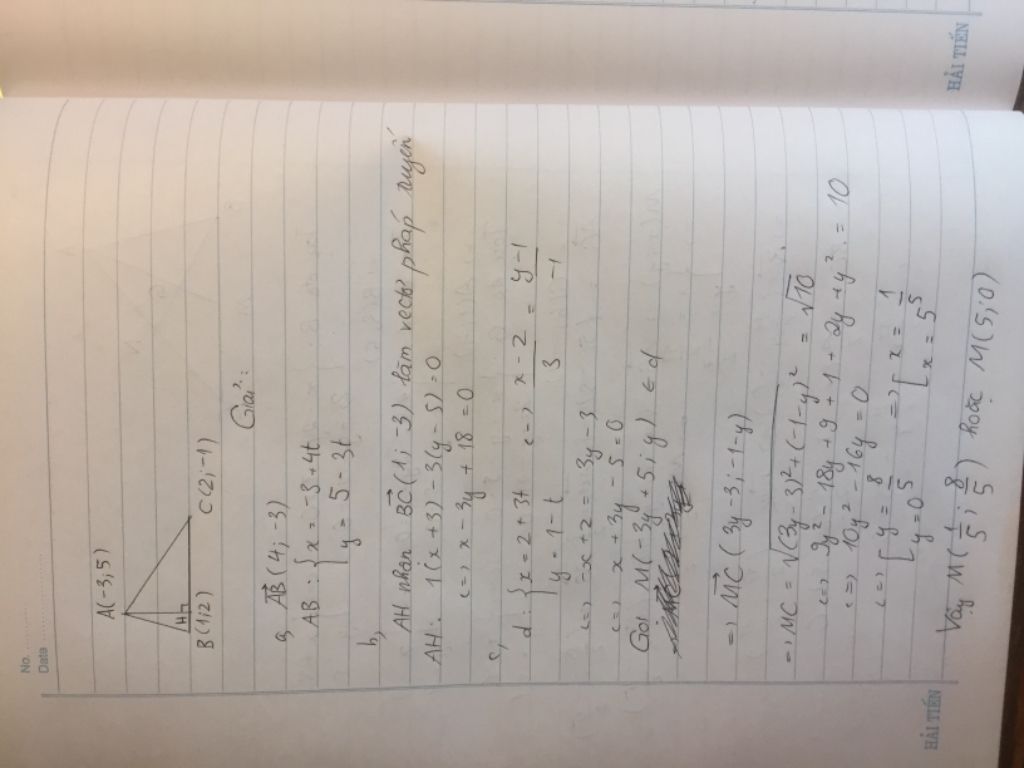 No. ........
Date ........................
A(-3,5)
H
B(1;2) C(2;-1)
Giải:
a, AB⃗ (4; -3)
AB : { x = -3 + 4t
y = 5 - 3t
b,
AH nhận BC⃗ (1; -3) làm vectơ pháp tuyến
AH: 1(x+3) - 3(y-5) = 0
<=> x - 3y + 18 = 0
c,
d : { x = 2 + 3t <=> (x-2)/3 = (y-1)/-1
y = 1 - t
<=> -x + 2 = 3y - 3
<=> x + 3y - 5 = 0
Gọi M(-3y + 5; y) ∈ d
=> MC⃗ (3y - 3; -1 - y)
=> MC = √((3y-3)² + (-1-y)²) = √10
<=> 9y² - 18y + 9 + 1 + 2y + y² = 10
<=> 10y² - 16y = 0
<=> [ y = 8/5 => [ x = 1/5
y = 0 x = 5
Vậy M(1/5; 8/5) hoặc M(5; 0)
HẢI TIẾN
HẢI TIẾN